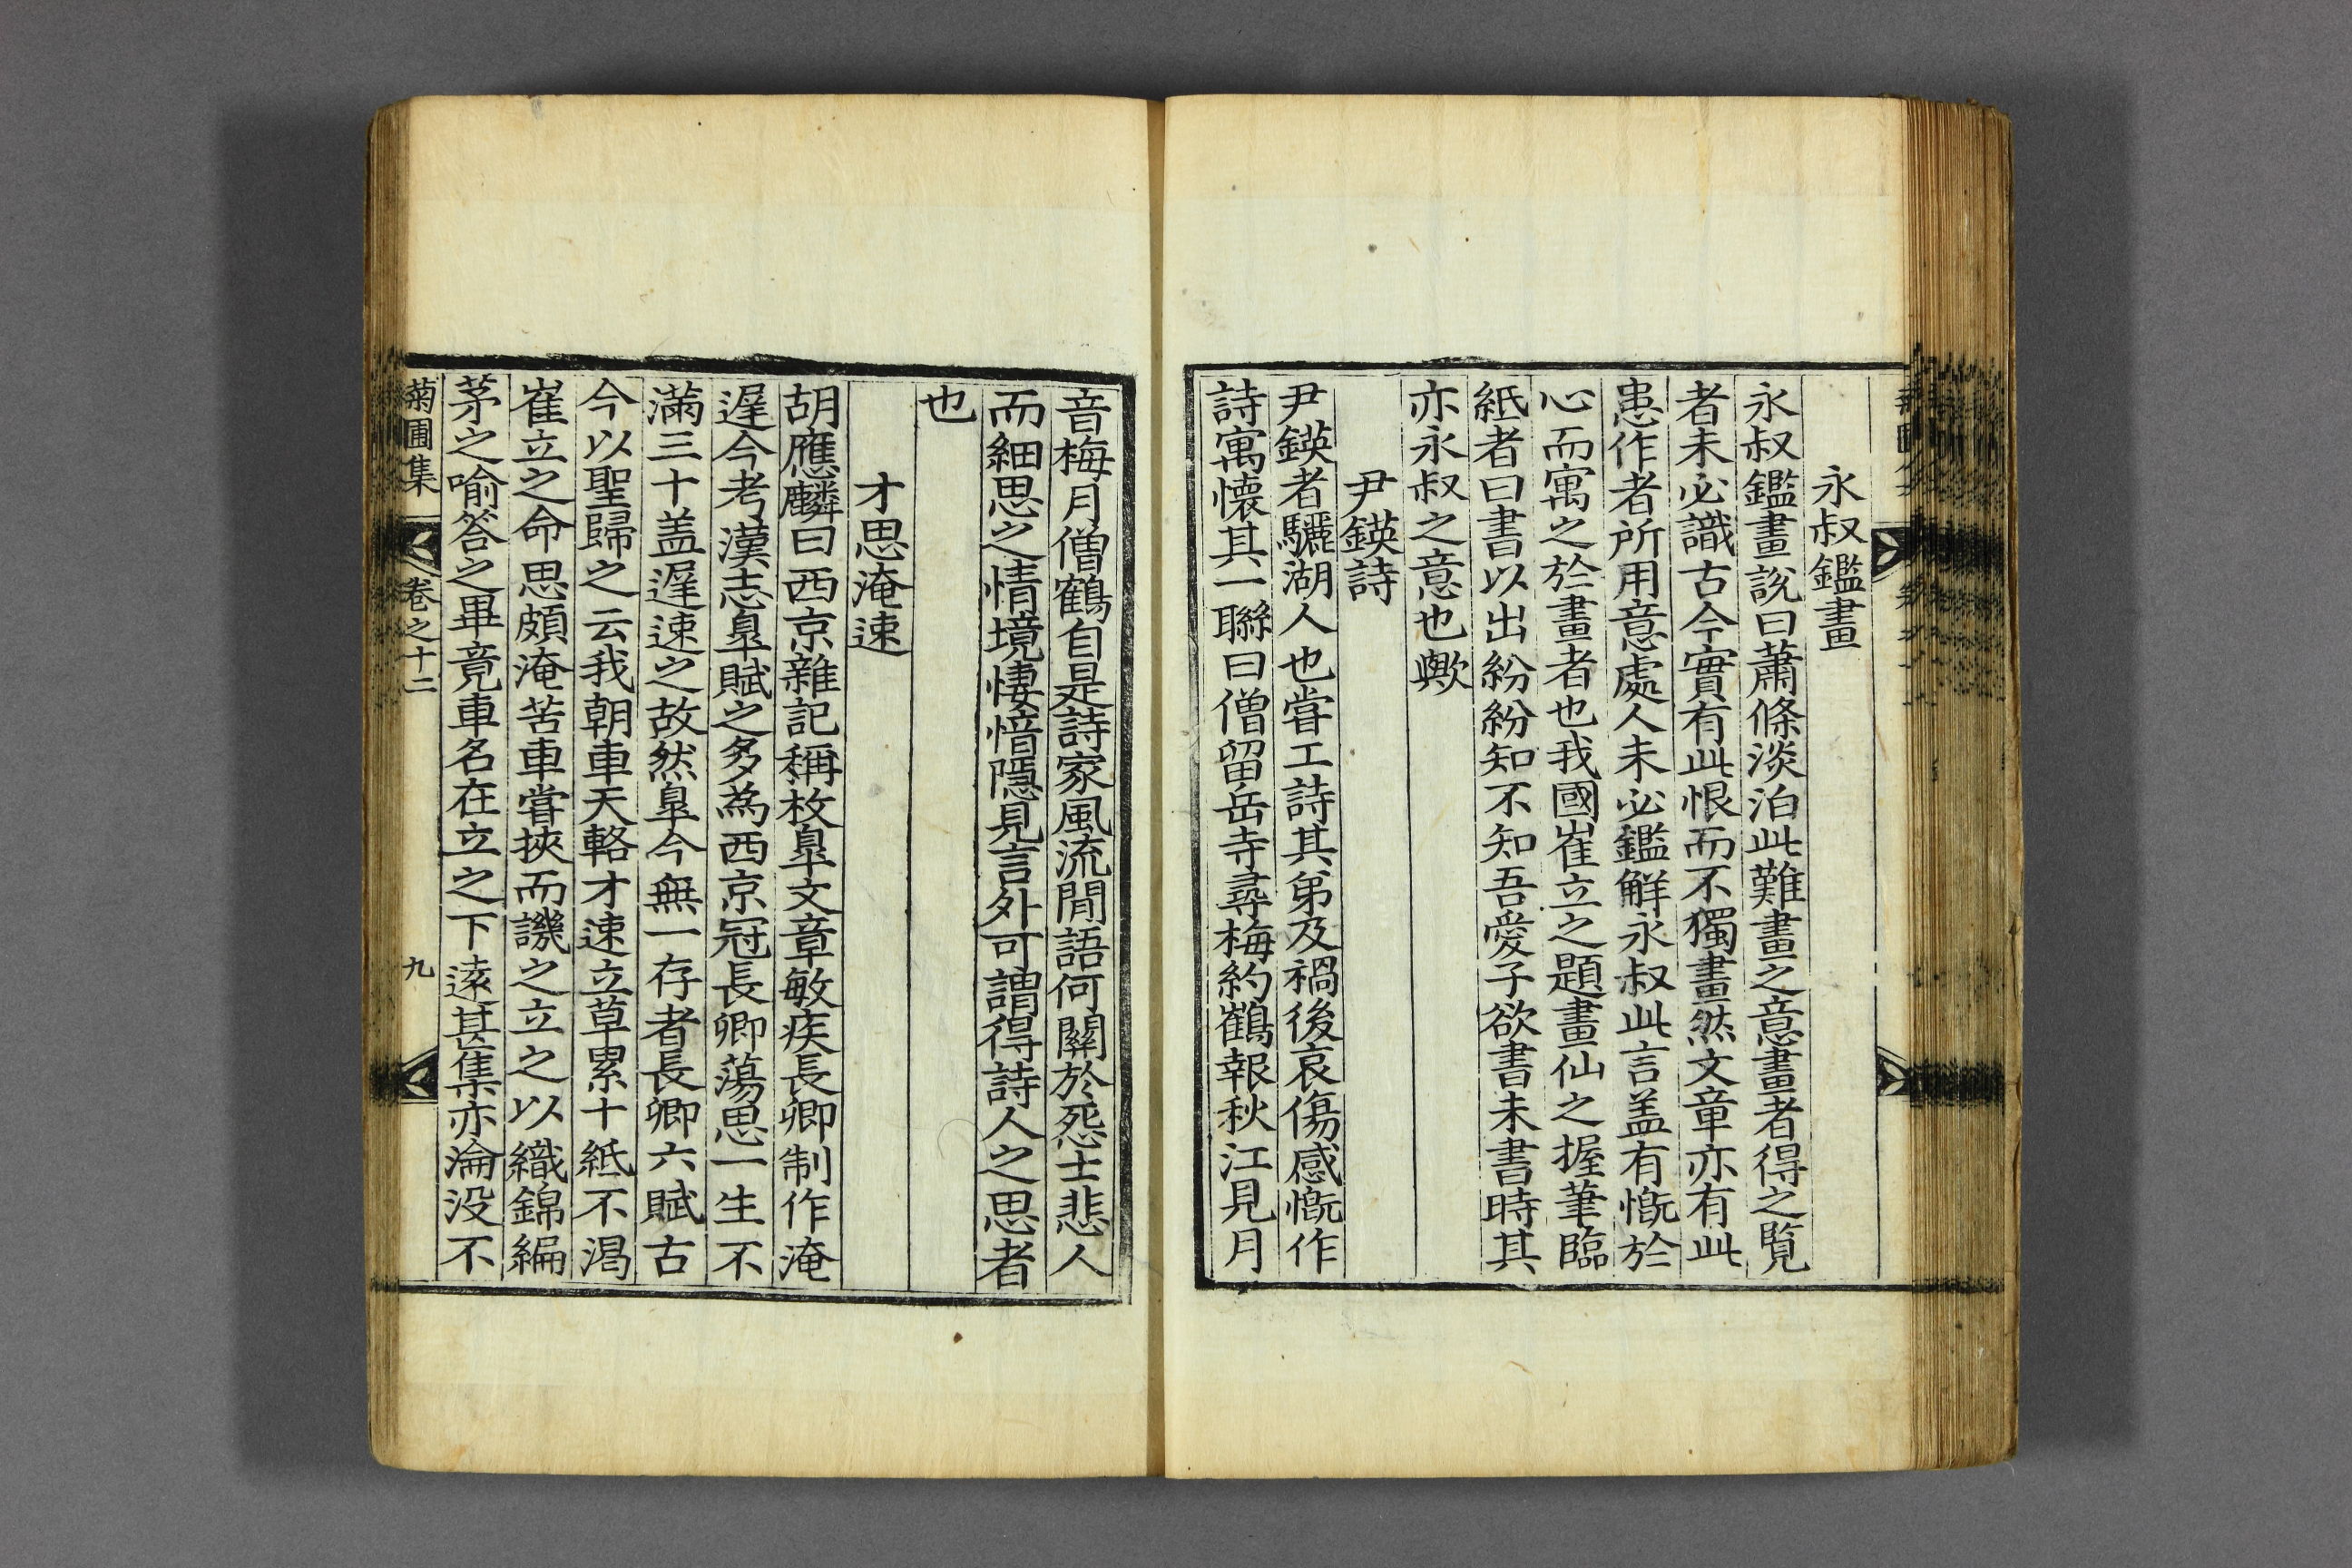 永叔鑑畫
永叔鑑畫說曰蕭條淡泊此難畫之意畫者得之覽
者未必識古今實有此恨而不獨畫然文章亦有此
患作者所用意處人未必鑑觧永叔此言盖有慨於
心而寓之於畫者也我國崔立之題畫仙之握筆臨
紙者曰書以出紛紛知不知吾愛子欲書未書時其
亦永叔之意也歟
尹鍈詩
尹鍈者驪湖人也嘗工詩其弟及禍後哀傷感慨作
詩寓懷其一聯曰僧留岳寺尋梅約鶴報秋江見月
音梅月僧鶴自是詩家風流閒語何關於怨士悲人
而細思之情境悽愔隱見言外可謂得詩人之思者
也
才思淹速
胡應麟曰西京雜記稱枚皐文章敏疾長卿制作淹
遲今考漢志皐賦之多為西京冠長卿蕩思一生不
滿三十盖遲速之故然皐今無一存者長卿六賦古
今以聖歸之云我朝車天輅才速立草累十紙不渴
崔立之命思頗淹苦車嘗挾而譏之立之以織錦編
茅之喻答之畢竟車名在立之下遠甚集亦淪没不
菊圃集 卷之十二 九